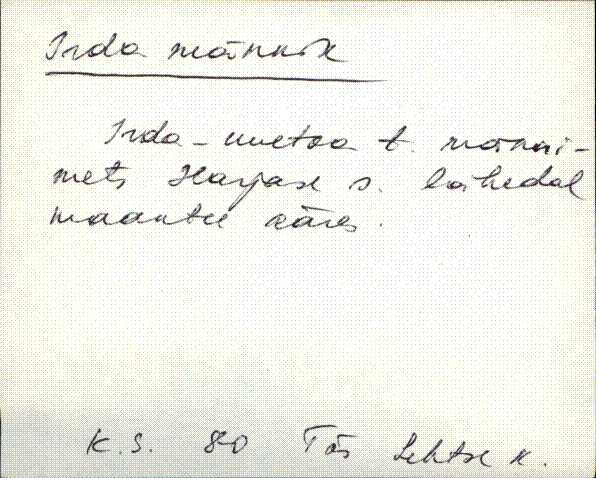 Irda männik
Irda-uuetoa t. männi-
mets Harjase s. lähedal
maantee ääres.
K.S. 80 Täs Lehtse k.